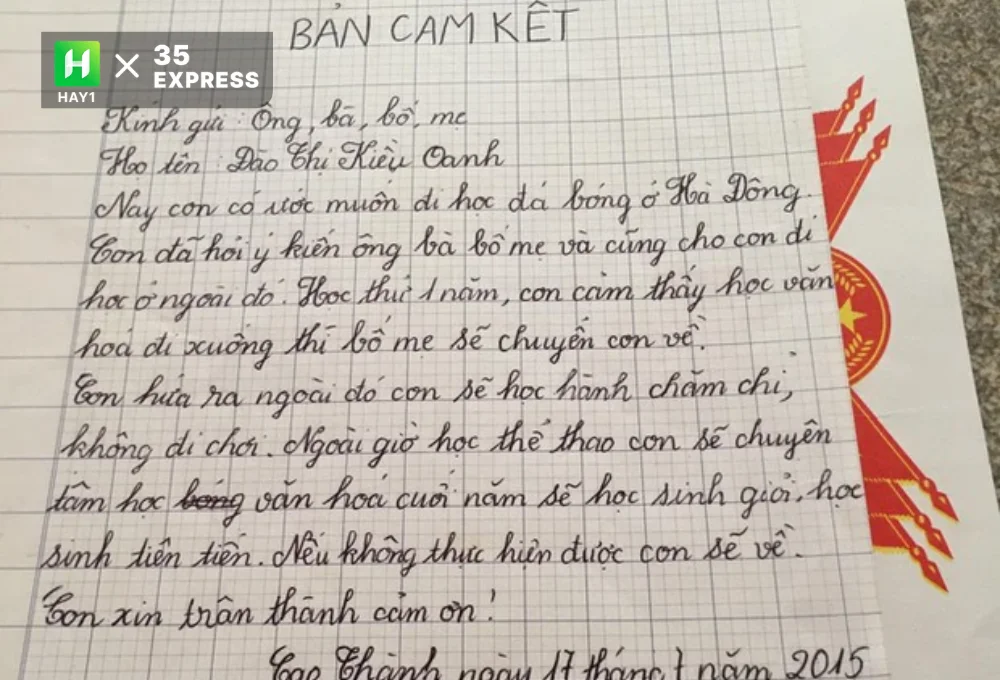 BẢN CAM KẾT
H × 35 EXPRESS
HAY1
Kính gửi : Ông, bà, bố, mẹ
Họ tên : Đào Thị Kiều Oanh
Nay con có ước muốn đi học đá bóng ở Hà Đông.
Con đã hỏi ý kiến ông bà bố mẹ và cũng cho con đi
học ở ngoài đó. Học thử 1 năm, con cảm thấy học văn
hoá đi xuống thì bố mẹ sẽ chuyển con về.
Con hứa ra ngoài đó con sẽ học hành chăm chỉ,
không đi chơi. Ngoài giờ học thể thao con sẽ chuyên
tâm học bóng văn hoá cuối năm sẽ học sinh giỏi, học
sinh tiên tiến. Nếu không thực hiện được con sẽ về.
Con xin trân thành cảm ơn!
Cao Thành ngày 17 tháng 7 năm 2015